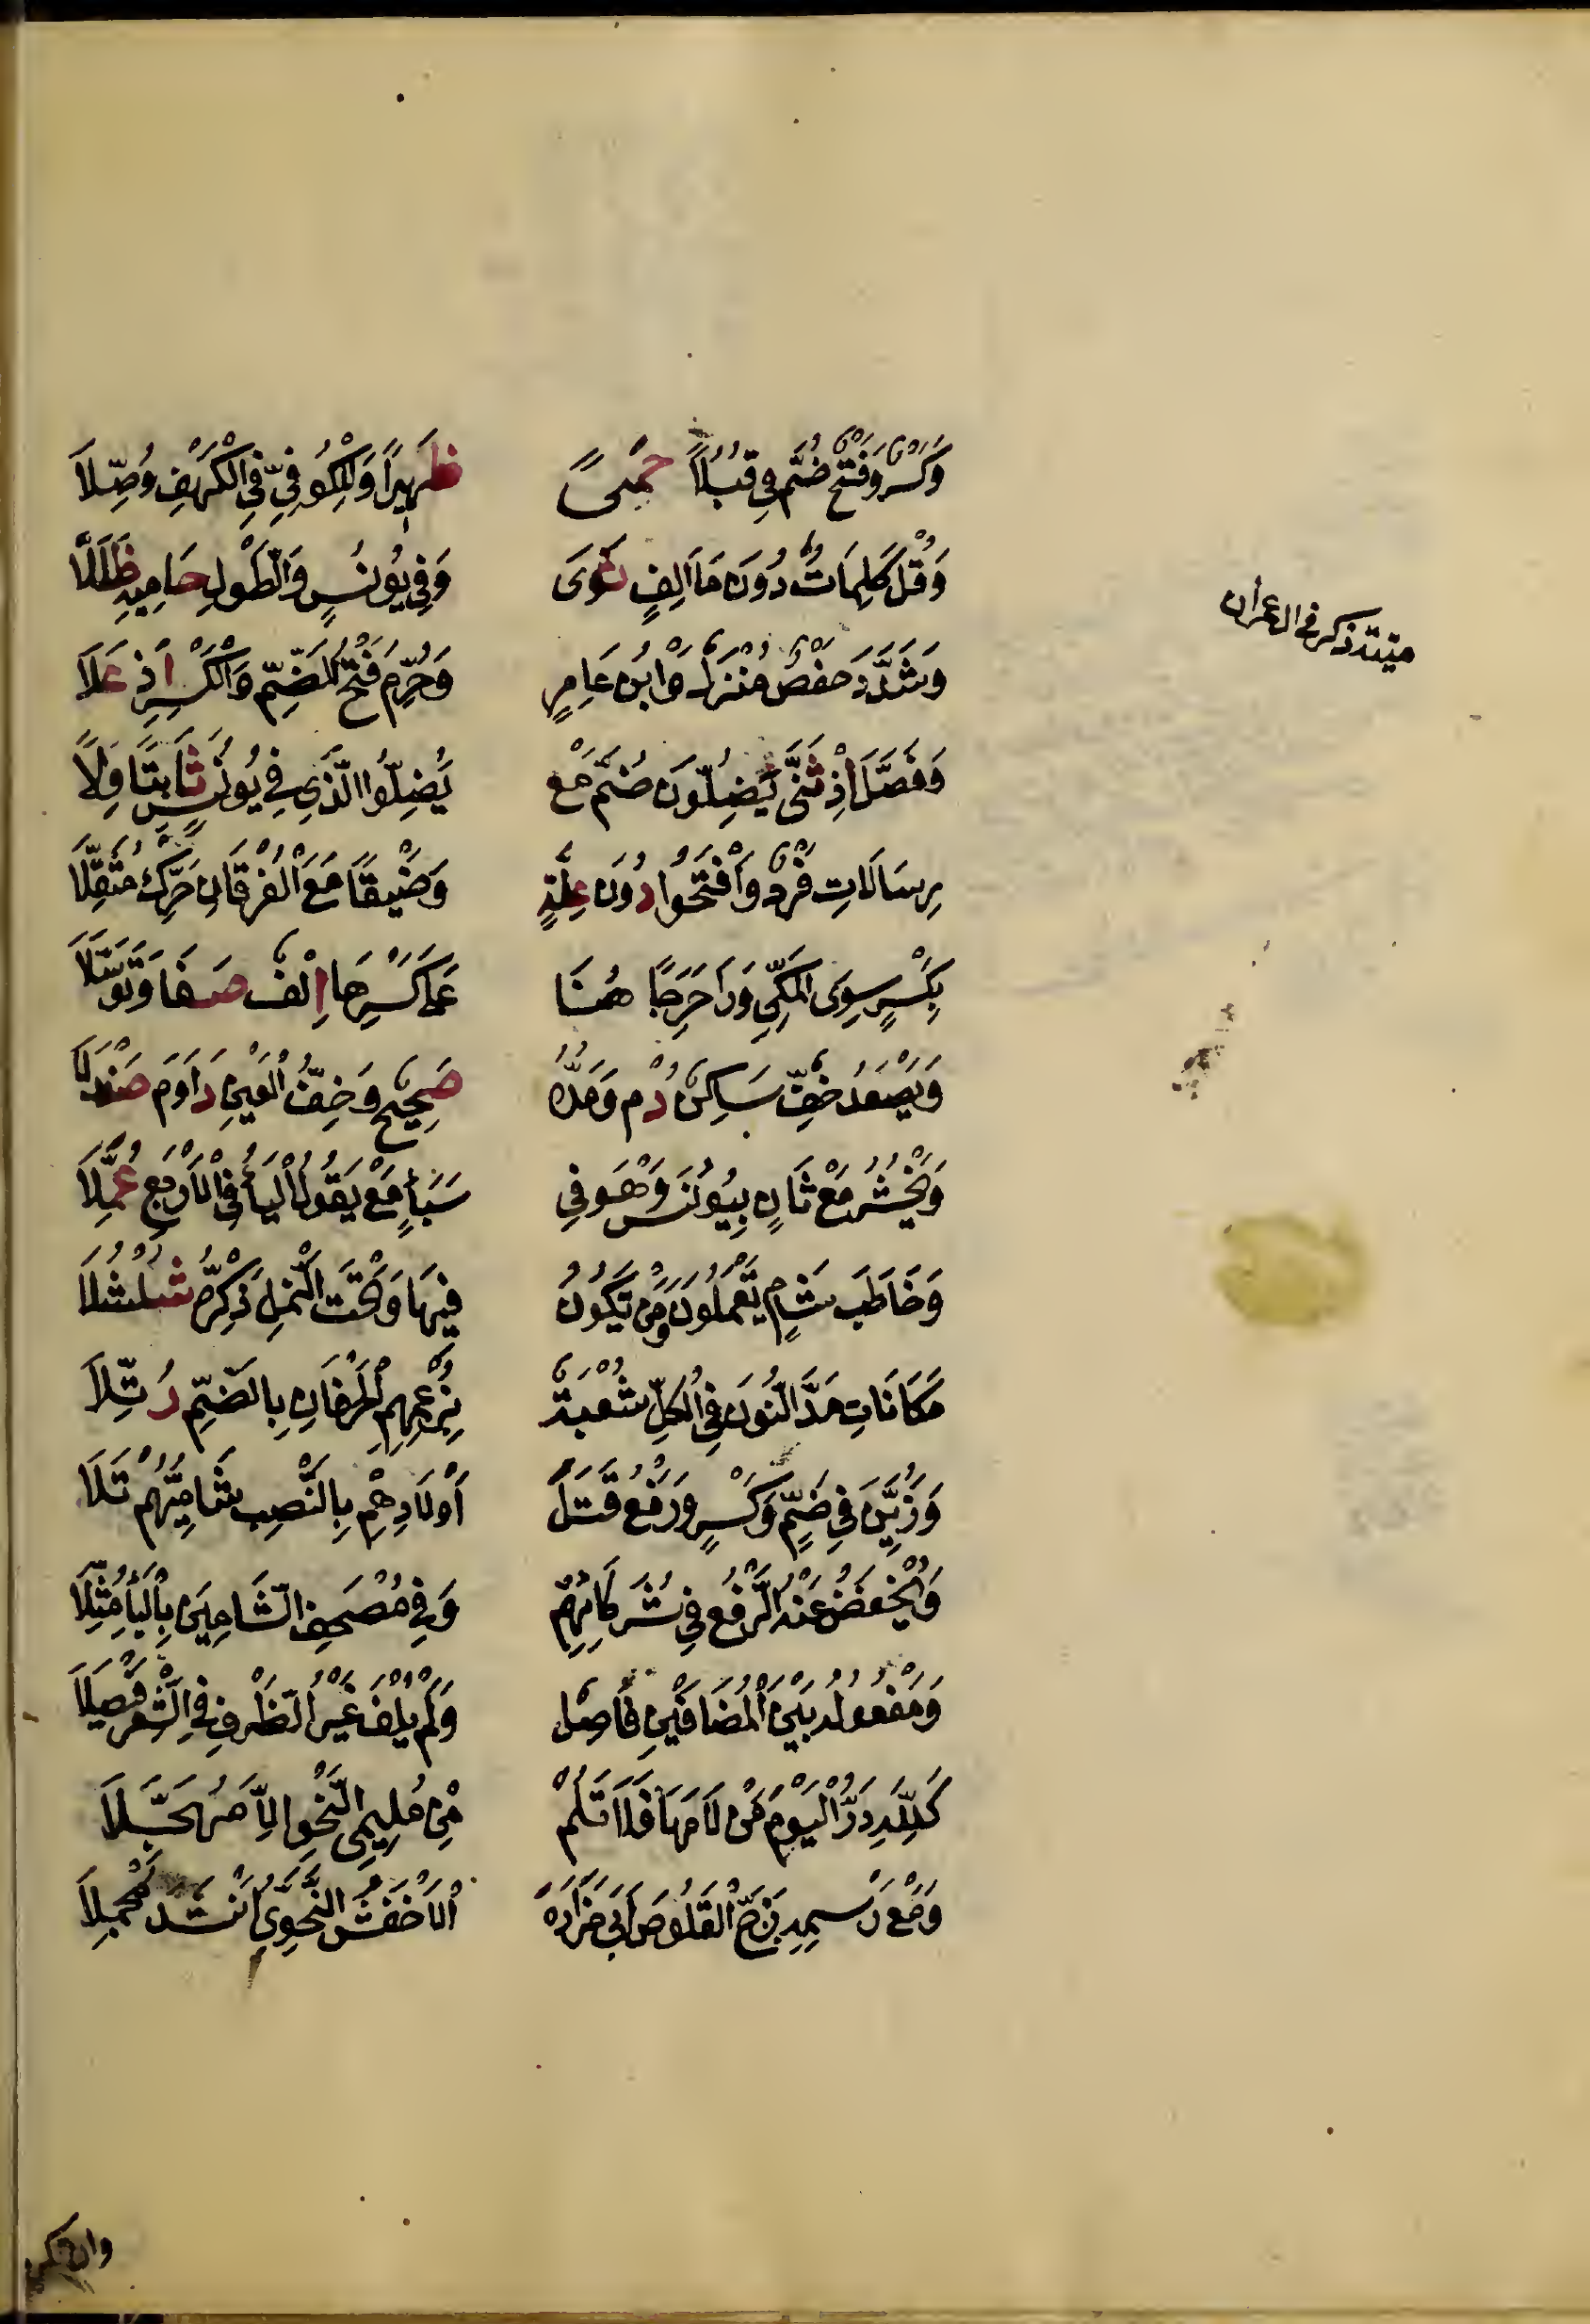 وَكَسْرٌ وَفَتْحٌ ضُمَّ فِي قِبَلًا حَمَىً ظَهِيرًا وَلِلْكُوفِيِّ فِي الْكَهْفِ وُصِّلَا
وَقُلْ كَلِمَاتٌ دُونَ مَا أَلِفٍ ثَوَى وَفِي يُونُسٍ وَالطَّوْلِ حَامِيهِ ظَلَّلَا
ميتتة ذكر في ال عمران
وَشَدَّدَ حَفْصٌ مُنْزَلٌ وَابْنُ عَامِرٍ وَحُرِّمَ فَتْحُ الضَّمِّ وَالْكَسْرِ إِذْ عَلَا
وَفَصَّلَ إِذْ ثَنَّى يَضِلُّونَ ضُمَّ مَعْ يَضِلُّوا الَّذِي فِي يُونُسٍ ثَابِتًا وِلَا
رِسَالَاتِ فَرْدٌ وَافْتَحُوا دُونَ عِلَّةٍ وَضَيْقًا مَعَ الْفُرْقَانِ حَرِّكْ مُثَقِّلَا
بِكَسْرٍ سِوَى الْمَكِّي وَرَا حَرِجًا هُنَا عَلَى كَسْرِهَا إِلْفٌ صَفَا وَتَوَسَّلَا
وَيَصْعَدُ خِفٌّ سَاكِنٌ دُمْ وَمَدُّهُ صَحِيحٌ وَخِفُّ الْعَيْنِ دَاوَمَ صَنْدَلَا
وَنَحْشُرُ مَعْ ثَانٍ بِيُونُسَ وَهْوَ فِي سَبَأٍ مَعْ يَقُولُ الْيَا فِي الْأَرْبَعِ عُمِّلَا
وَخَاطَبَ شَامٍ يَعْمَلُونَ وَمَنْ تَكُونُ فِيهَا وَتَحْتَ النَّمْلِ ذَكِّرْهُ شُلْشُلَا
مَكَانَاتِ مَدَّ النُّونَ فِي الْكُلِّ شُعْبَةٌ بِزُعْمِهِمُ الْحَرْفَانِ بِالضَّمِّ رُتِّلَا
وَزُيِّنَ فِي ضَمٍّ وَكَسْرٍ وَرَفْعُ قَتْلَ أَوْلَادِهِمْ بِالنَّصْبِ شَامِيُّهُمْ تَلَا
وَيُخْفَضُ عَنْهُ الرَّفْعُ فِي شُرَكَائِهِمْ وَفِي مُصْحَفِ الشَّامِينَ بِالْيَاءِ مُثِّلَا
وَمَفْعُولُهُ بَيْنَ الْمُضَافَيْنِ فَاصِلٌ وَلَمْ يُلْفَ غَيْرُ الظَّرْفِ فِي الشِّعْرِ فَيْصَلَا
كَلِلَّهِ دَرُّ الْيَوْمَ مَنْ لَامَهَا فَلَا تَلُمْ مِنْ مُلِيمِي النَّحْوِ إِلَّا مُجَهِّلَا
وَمَعْ رَسْمِهِ زَجَّ الْقَلُوصَ أَبِي مَزَادَهْ الْأَخْفَشُ النَّحْوِيُّ أَنْشَدَ مُجْمِلَا
وان تكن